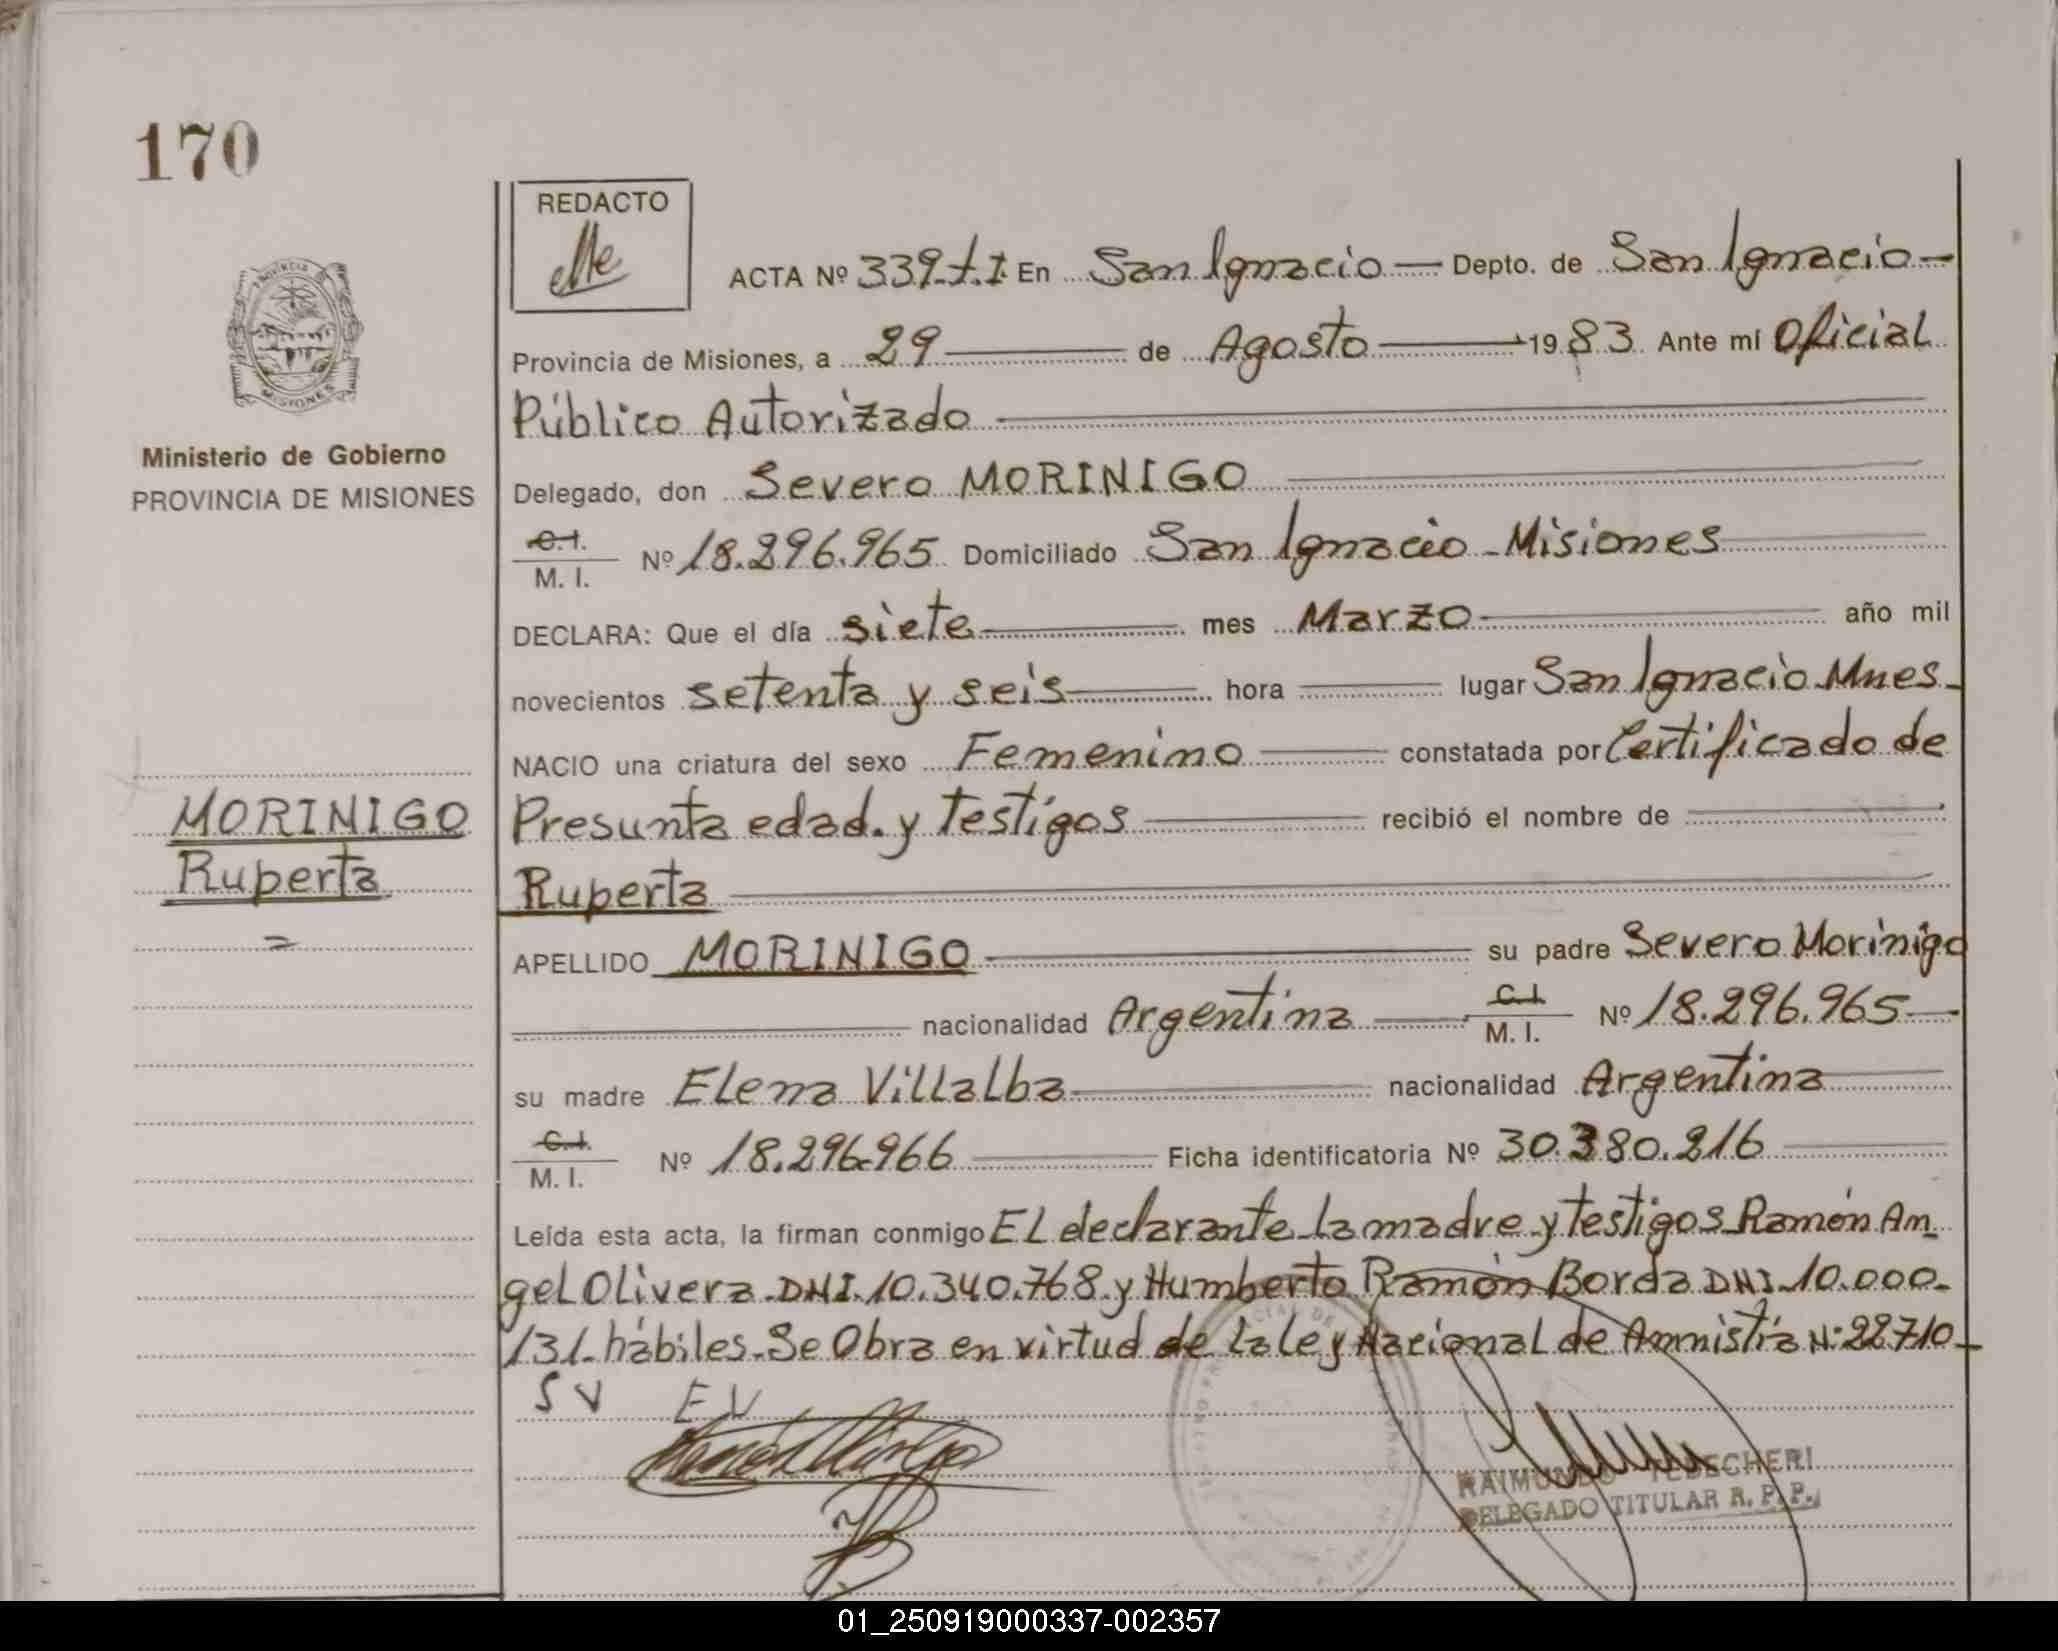 170
REDACTO
ACTA Nº 339.T.I. En San Ignacio — Depto. de San Ignacio —
Provincia de Misiones, a 29 de Agosto 1983 Ante mí Oficial
Público Autorizado
Delegado, don Severo MORINIGO
C.I. / M. I. Nº 18.296.965 Domiciliado San Ignacio - Misiones
DECLARA: Que el día siete mes Marzo año mil
novecientos setenta y seis hora lugar San Ignacio Mnes
NACIO una criatura del sexo Femenino constatada por Certificado de
Presunta edad. y Testigos recibió el nombre de
Ruperta
APELLIDO MORINIGO su padre Severo Morinigo
nacionalidad Argentina C.I. / M. I. Nº 18.296.965
su madre Elena Villalba nacionalidad Argentina
C.I. / M. I. Nº 18.296.966 Ficha identificatoria Nº 30.380.216
Leída esta acta, la firman conmigo El declarante la madre y Testigos Ramón An
gel Olivera DNI. 10.340.768 y Humberto Ramón Borda DNI. 10.000.
131. hábiles. Se Obra en virtud de la ley Nacional de Amnistía N: 22710
S V E V
RAIMUNDO TEDECHERI
DELEGADO TITULAR R. P. P.
PROVINCIA
MISIONES
Ministerio de Gobierno
PROVINCIA DE MISIONES
MORINIGO
Ruperta
01_250919000337-002357